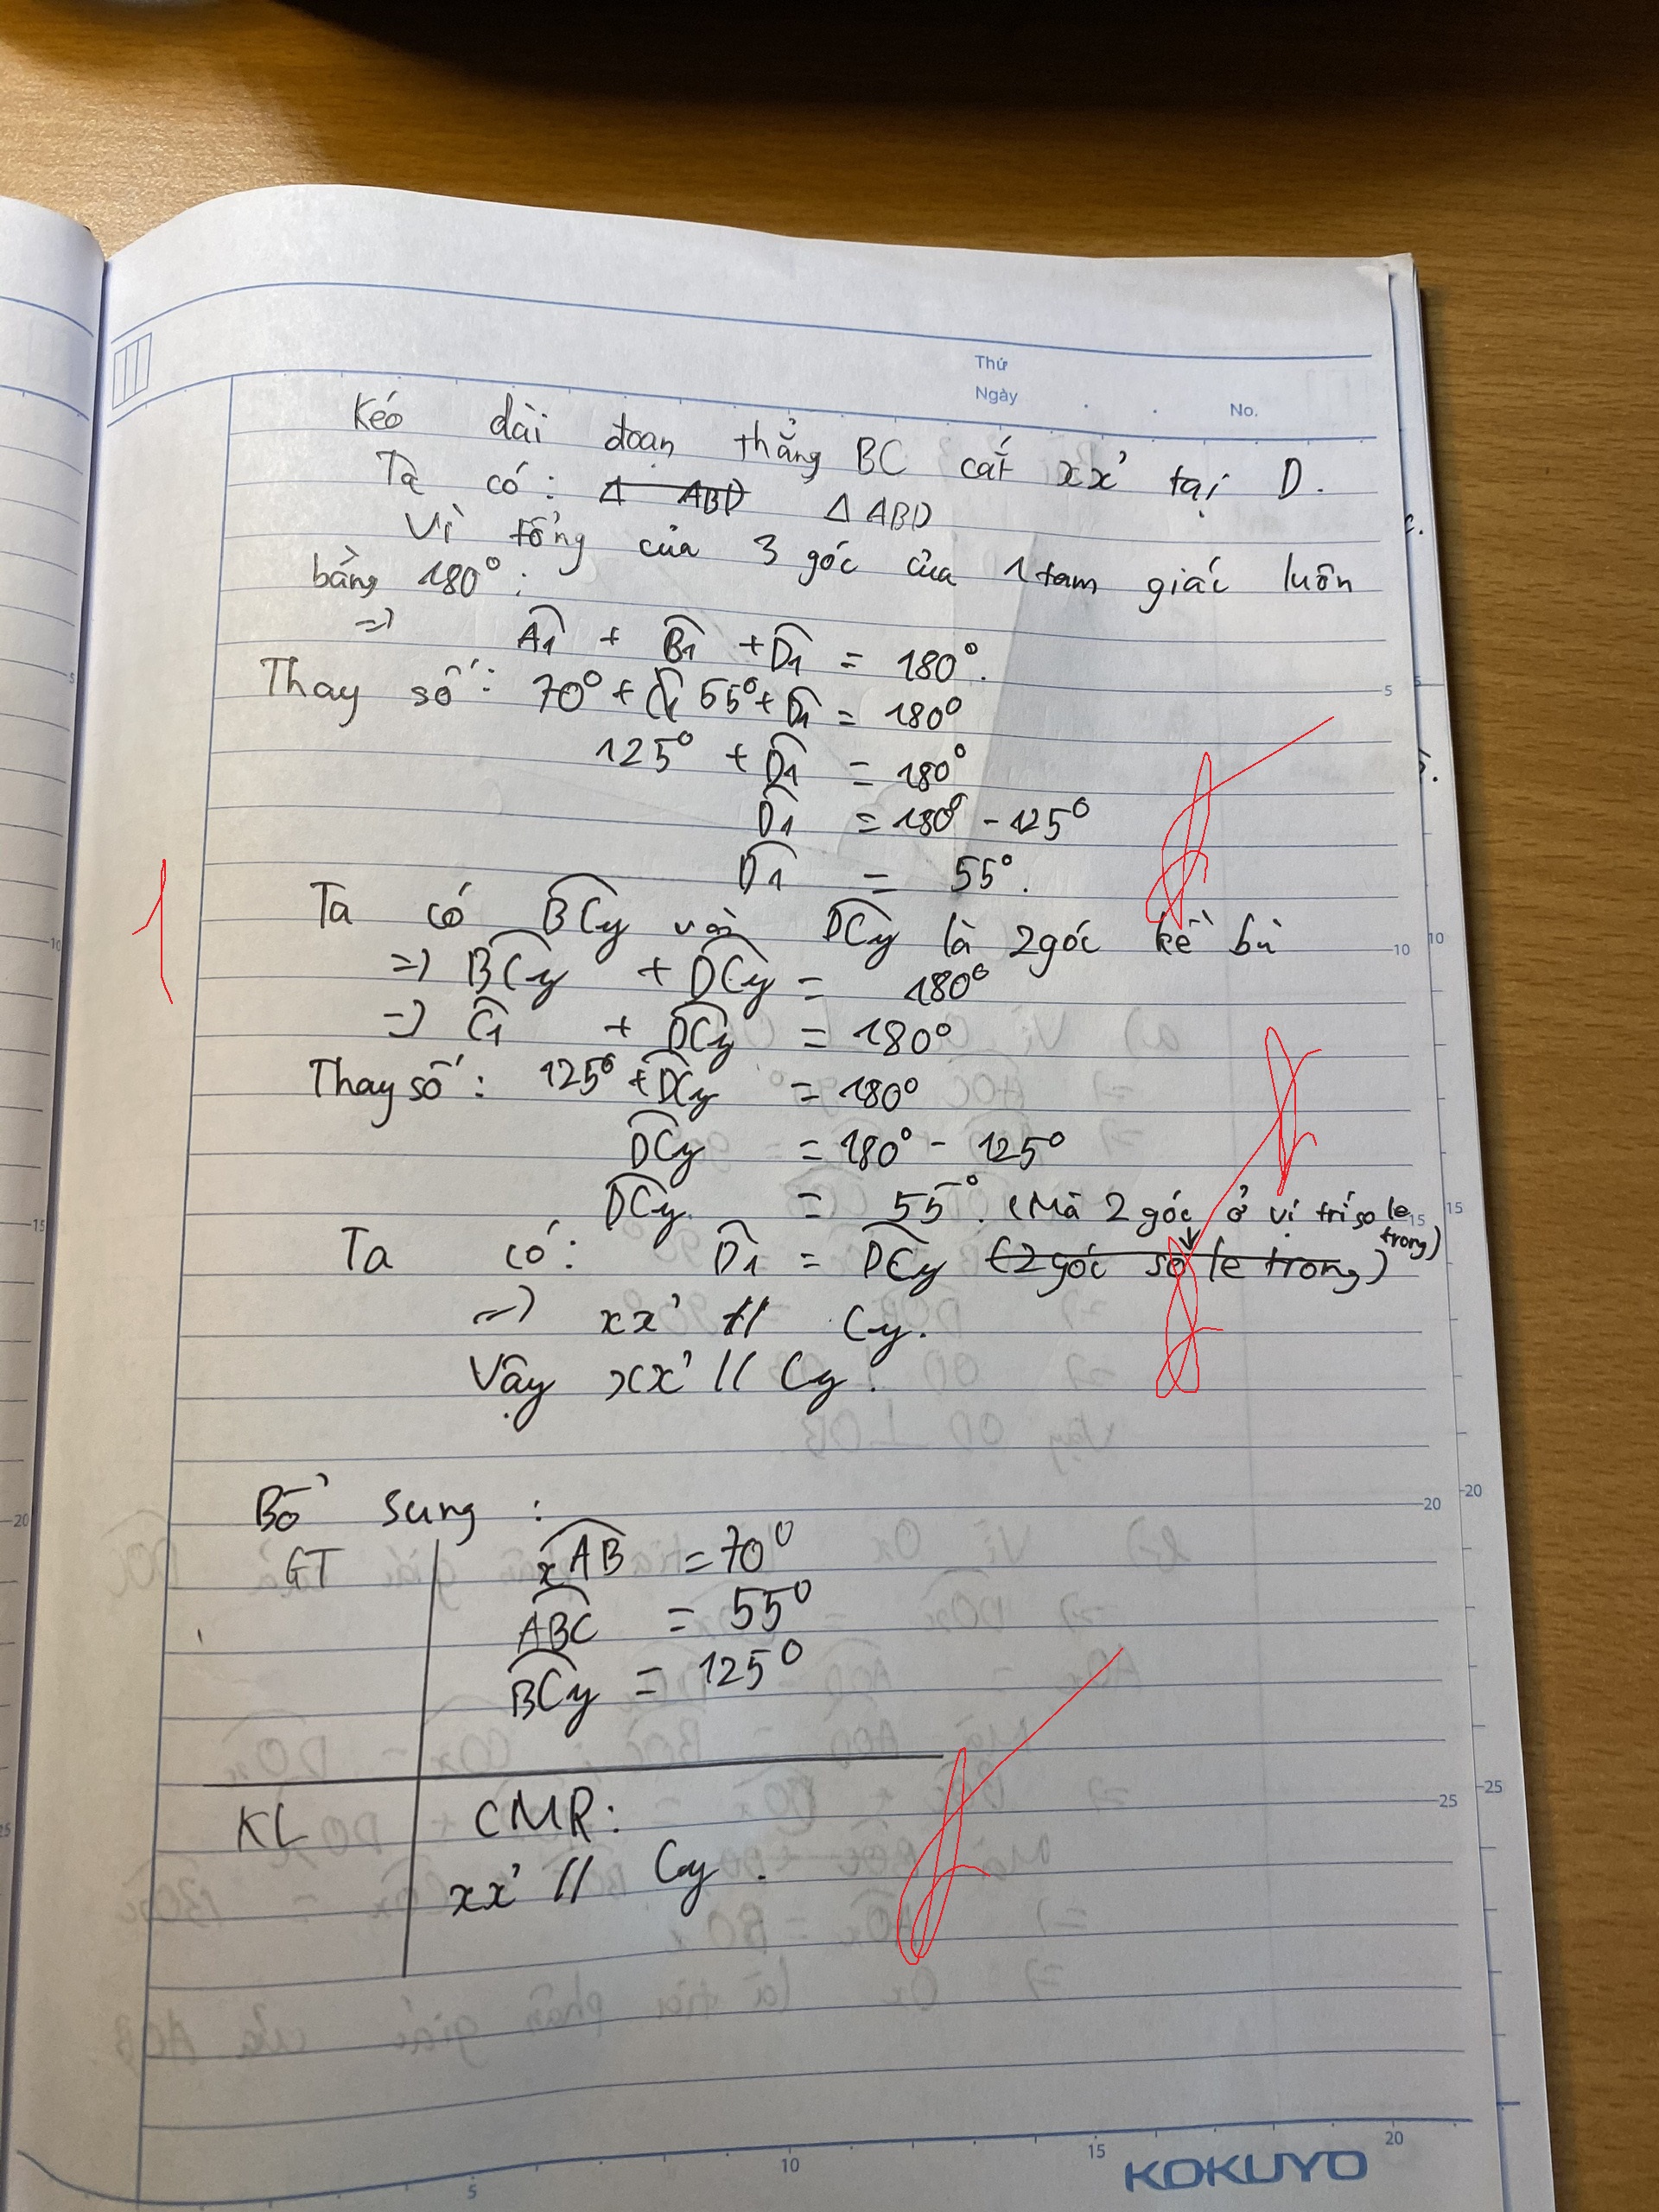 Thứ
Ngày
No.
Kéo dài đoạn thẳng BC cắt xx' tại D.
Ta có: Δ ABD Δ ABD
Vì tổng của 3 góc của 1 tam giác luôn
bằng 180°:
=> A1 + B1 + D1 = 180°.
Thay số: 70° + 55° + D1 = 180°
125° + D1 = 180°
D1 = 180° - 125°
D1 = 55°.
Ta có BCy và DCy là 2 góc kề bù
=> BCy + DCy = 180°
=> C1 + DCy = 180°
Thay số: 125° + DCy = 180°
DCy = 180° - 125°
DCy = 55°. (Mà 2 góc ở vị trí so le trong)
Ta có: D1 = DCy (2 góc so le trong)
=> xx' // Cy.
Vậy xx' // Cy.
1
Bổ sung:
GT xAB = 70°
ABC = 55°
BCy = 125°
KL CMR:
xx' // Cy.
5
10
15
20
25
5 10 15 20
KOKUYO